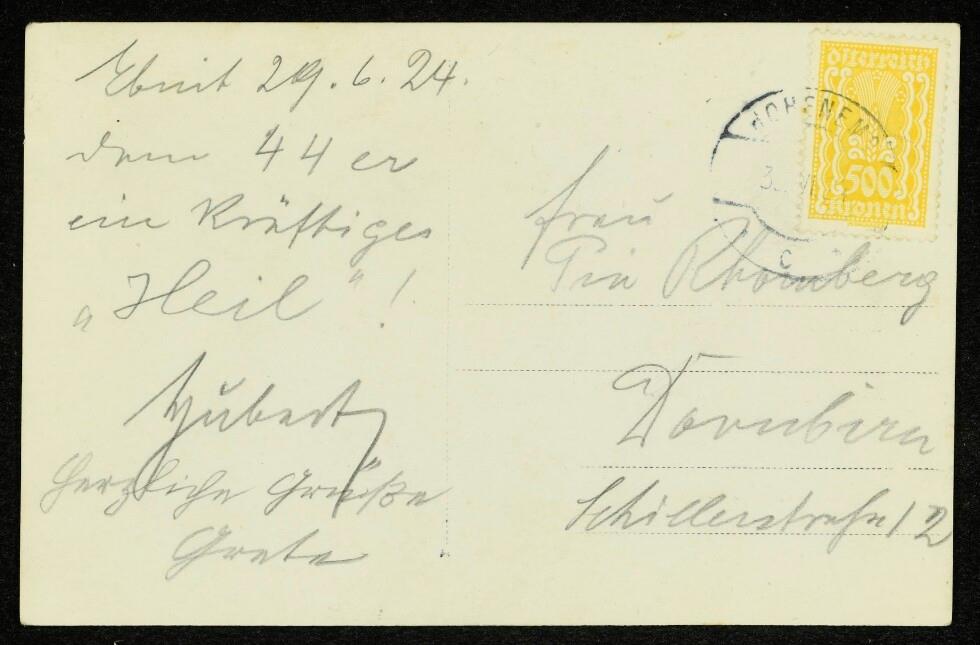 Ebnit 29.6.24.
dem 44 er
ein kräftiges
„Heil“!
Hubert
Herzliche Grüße
Grete
Österreich
500
Kronen
HOHENEMS
C
Frau
Pia Rhomberg
Dornbirn
Schillerstraße 12